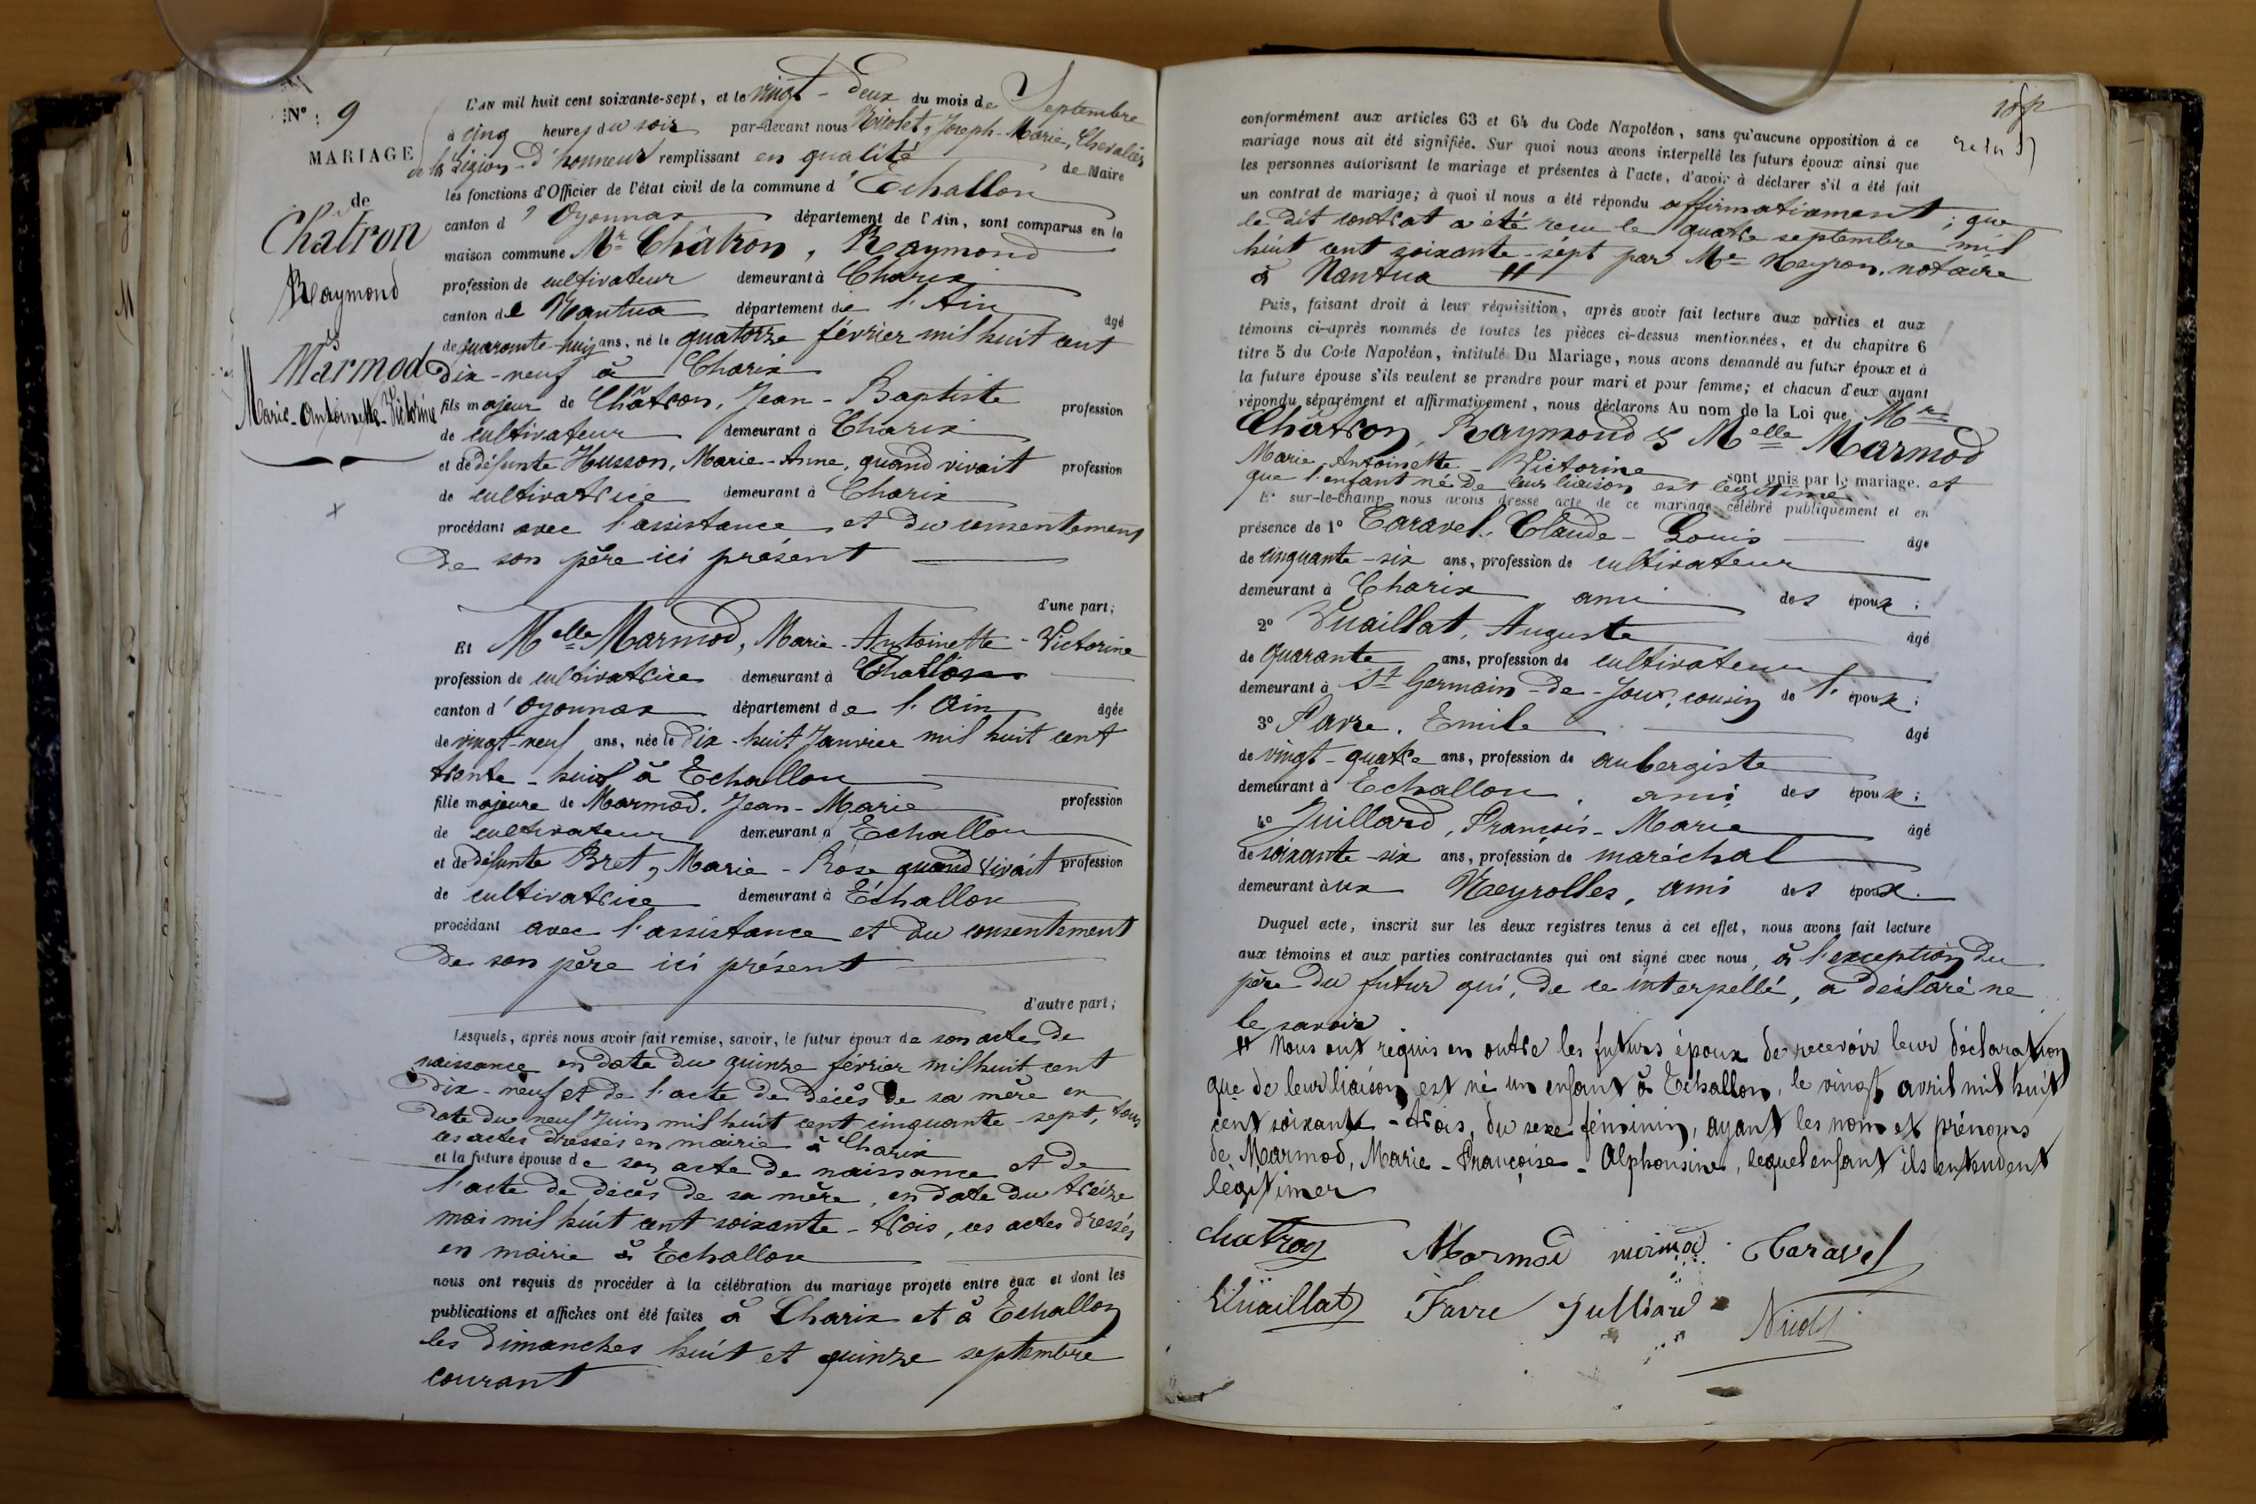 N° : 9
MARIAGE
de
Châtron
Raymond
&
Marmod
Marie-Antoinette-Victorine
L'AN mil huit cent soixante-sept, et le vingt-deux du mois de Septembre
à cinq heures du soir par-devant nous Nicolet, Joseph-Marie, Chevalier
de la Légion-d'honneur remplissant en qualité de Maire
les fonctions d'Officier de l'état civil de la commune d'Echallon
canton d'Oyonnax département de l'Ain, sont comparus en la
maison commune Mr Châtron, Raymond
profession de cultivateur demeurant à Charix
canton de Nantua département de l'Ain âgé
de quarante-huit ans, né le quatorze février mil huit cent
dix-neuf à Charix
fils majeur de Châtron, Jean-Baptiste profession
de cultivateur demeurant à Charix
et de défunte Husson, Marie-Anne, quand vivait profession
de cultivatrice demeurant à Charix
procédant avec l'assistance et du consentement
de son père ici présent
d'une part;
Et Melle Marmod, Marie-Antoinette-Victorine
profession de cultivatrice demeurant à Echallon
canton d'Oyonnax département de l'Ain âgée
de vingt-neuf ans, née le dix-huit Janvier mil huit cent
trente-huit à Echallon
fille majeure de Marmod, Jean-Marie profession
de cultivateur demeurant à Echallon
et de défunte Bret, Marie-Rose quand vivait profession
de cultivatrice demeurant à Echallon
procédant avec l'assistance et du consentement
de son père ici présent
d'autre part;
Lesquels, après nous avoir fait remise, savoir, le futur époux de son acte de
naissance en date du quinze février mil huit cent
dix-neuf et de l'acte de décès de sa mère en
date du neuf Juin mil huit cent cinquante-sept, tous
ces actes dressés en mairie à Charix
et la future épouse de son acte de naissance et de
l'acte de décès de sa mère, en date du treize
mai mil huit cent soixante-trois, ces actes dressés
en mairie à Echallon
nous ont requis de procéder à la célébration du mariage projeté entre eux et dont les
publications et affiches ont été faites à Charix et à Echallon
les dimanches huit et quinze septembre
courant
conformément aux articles 63 et 64 du Code Napoléon, sans qu'aucune opposition à ce
mariage nous ait été signifiée. Sur quoi nous avons interpellé les futurs époux ainsi que
les personnes autorisant le mariage et présentes à l'acte, d'avoir à déclarer s'il a été fait
un contrat de mariage; à quoi il nous a été répondu affirmativement; que
le dit contrat a été reçu le quatre septembre mil
huit cent soixante-sept par Me Neyron, notaire
à Nantua #
Puis, faisant droit à leur réquisition, après avoir fait lecture aux parties et aux
témoins ci-après nommés de toutes les pièces ci-dessus mentionnées, et du chapitre 6
titre 5 du Code Napoléon, intitulé Du Mariage, nous avons demandé au futur époux et à
la future épouse s'ils veulent se prendre pour mari et pour femme; et chacun d'eux ayant
répondu séparément et affirmativement, nous déclarons Au nom de la Loi que Mr
Châtron, Raymond & Melle Marmod
Marie-Antoinette-Victorine sont unis par le mariage. et
que l'enfant né de leur liaison est légitimé
Et sur-le-champ nous avons dressé acte de ce mariage célébré publiquement et en
présence de 1° Caravel, Claude-Louis âgé
de cinquante-six ans, profession de cultivateur
demeurant à Charix ami des époux;
2° Vuaillat, Auguste âgé
de quarante ans, profession de cultivateur
demeurant à St Germain-de-Joux, cousin de l'époux;
3° Favre, Emile âgé
de vingt-quatre ans, profession de aubergiste
demeurant à Echallon, ami des époux;
4° Juillard, François-Marie âgé
de soixante-six ans, profession de maréchal
demeurant aux Neyrolles, ami des époux.
Duquel acte, inscrit sur les deux registres tenus à cet effet, nous avons fait lecture
aux témoins et aux parties contractantes qui ont signé avec nous, à l'exception du
père du futur qui, de ce interpellé, a déclaré ne
le savoir
# Nous ont requis en outre les futurs époux de recevoir leur déclaration
que de leur liaison est né un enfant à Echallon, le vingt avril mil huit
cent soixante-trois, du sexe féminin, ayant les nom et prénoms
de Marmod, Marie-Françoise-Alphonsine, lequel enfant ils entendent
légitimer
Chatron Marmod marmod Caravel
Vuaillat Favre Julliard Nicolet